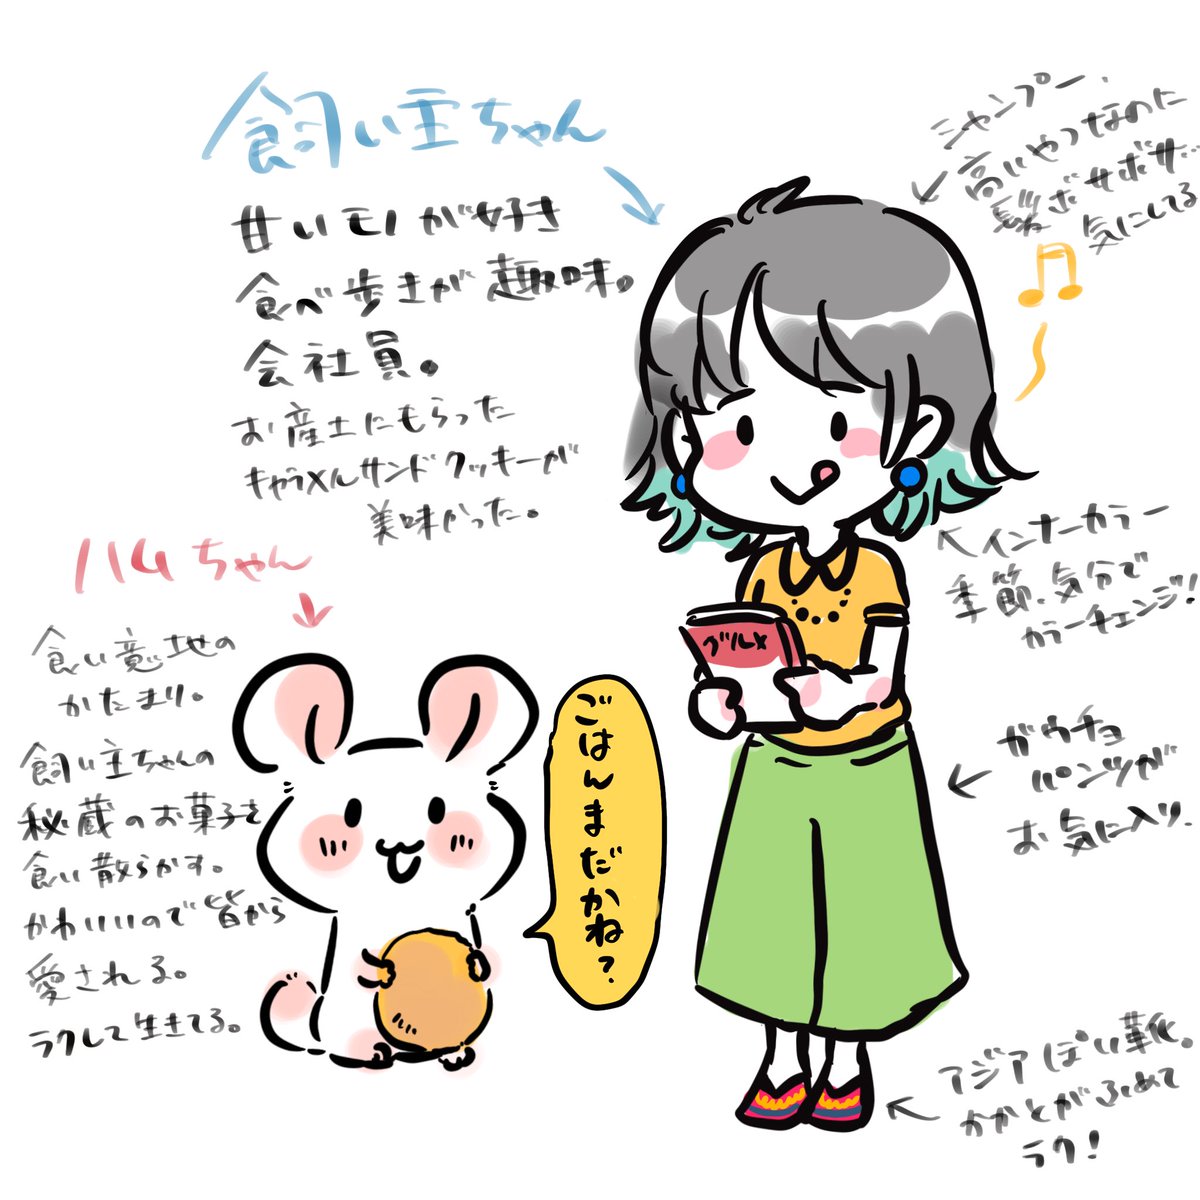 飼い主ちゃん
甘いモノが好き
食べ歩きが趣味。
会社員。
お産土にもらった
キャラメルサンドクッキーが
美味かった。
シャンプー、
高いやつなのに
髪ボサボサ…
気にしてる
インナーカラー
季節、気分で
カラーチェンジ!
グルメ
ガウチョ
パンツが
お気に入り。
アジアぽい靴。
かかとがふめて
ラク!
ハムちゃん
食い意地の
かたまり。
飼い主ちゃんの
秘蔵のお菓子を
食い散らかす。
かわいいので皆から
愛される。
ラクして生きてる。
ごはんまだかね?